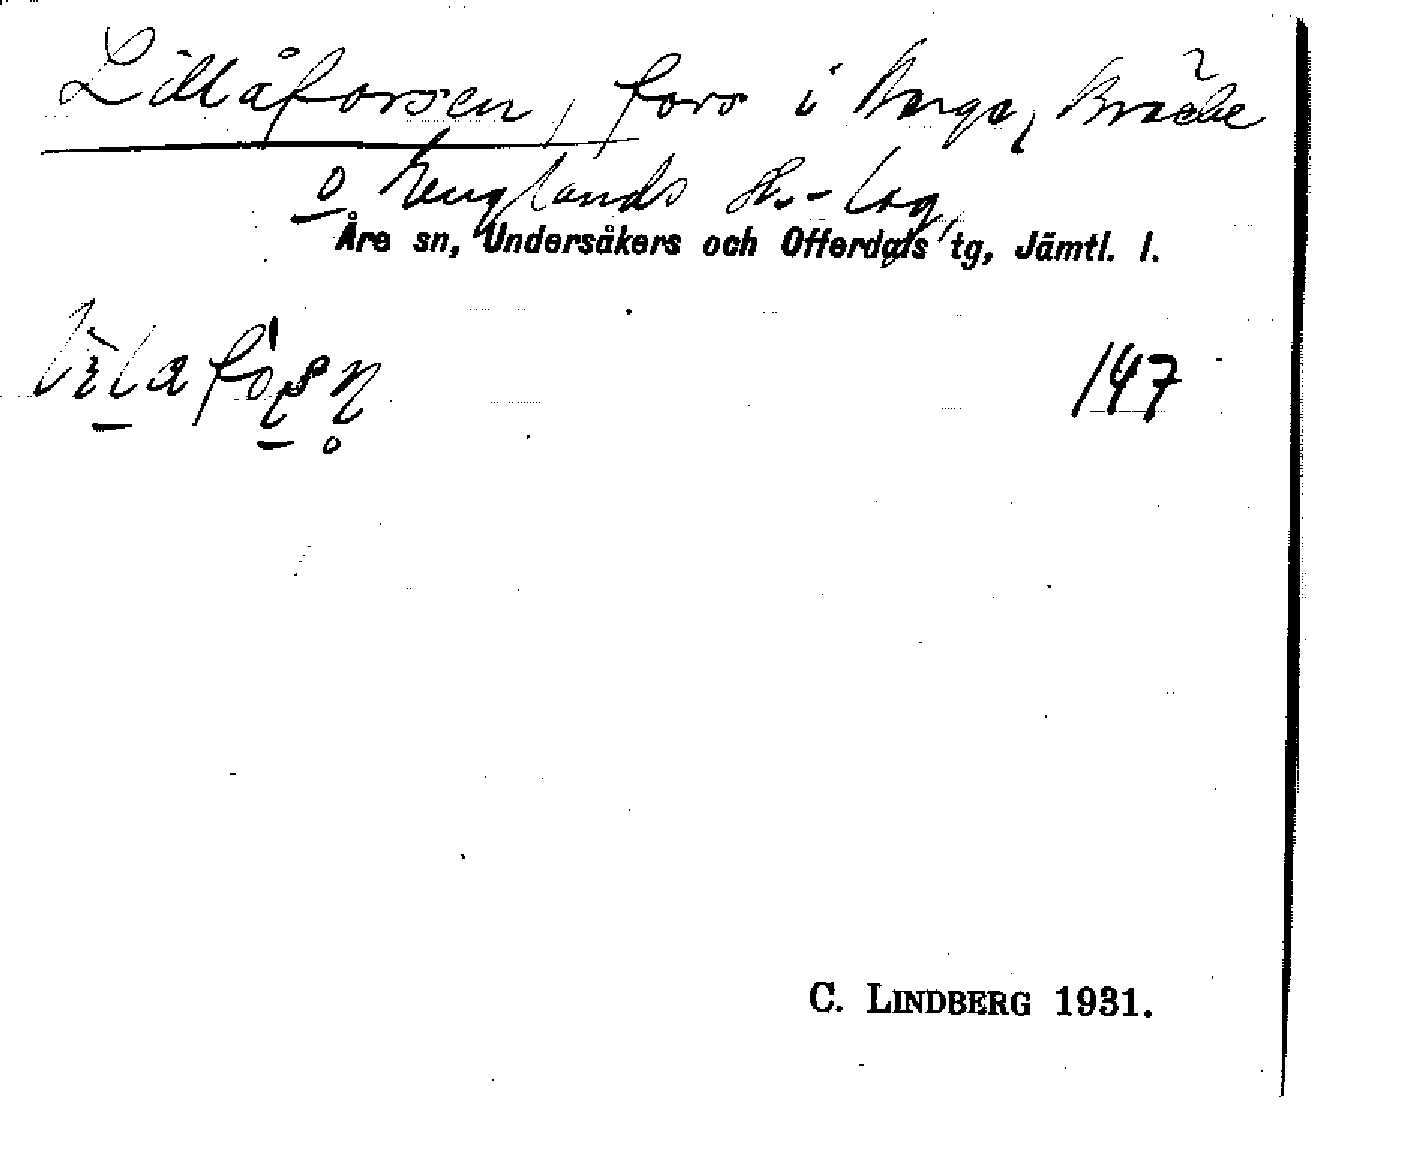 Lillåforsen, fors i Berge, Bräcke
o Englands sk.-lag,
Åre sn, Undersåkers och Offerdals tg, Jämtl. l.
147
C. LINDBERG 1931.